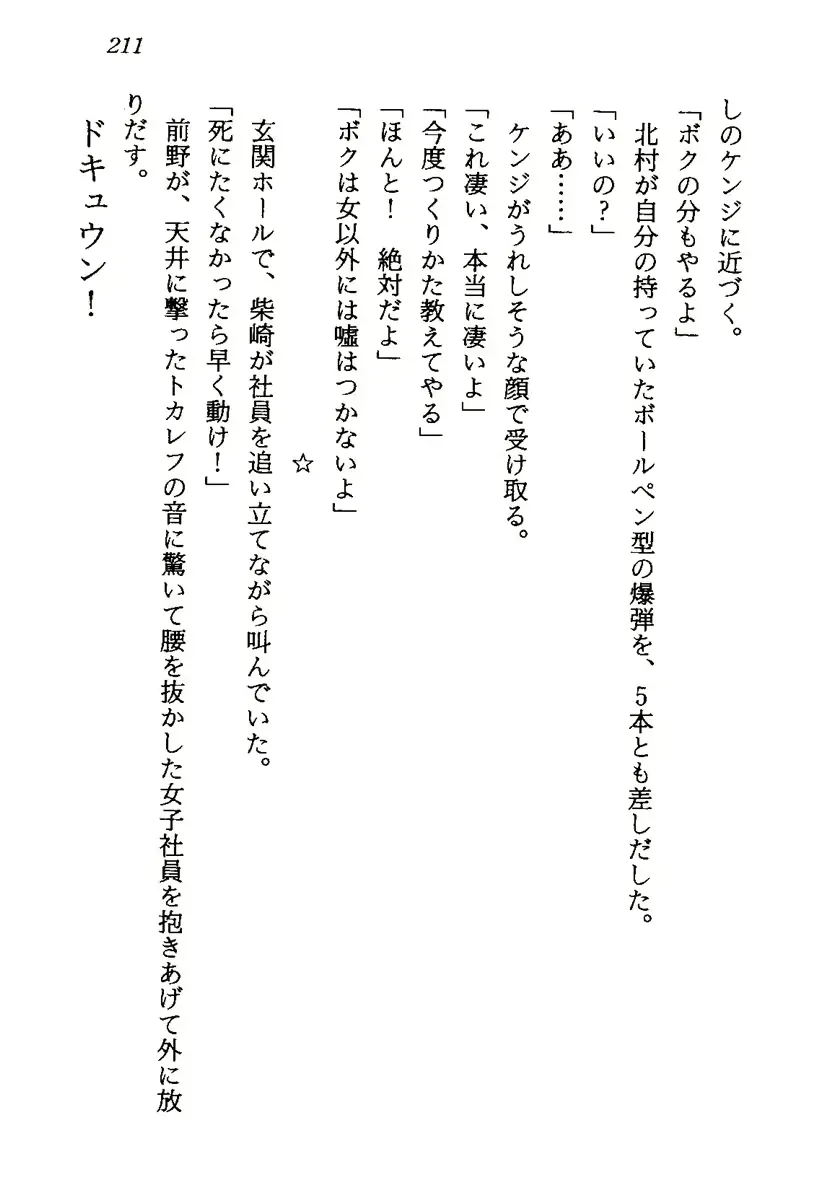 211
しのケンジに近づく。
「ボクの分もやるよ」
北村が自分の持っていたボールペン型の爆弾を、5本とも差しだした。
「いいの?」
「ああ……」
ケンジがうれしそうな顔で受け取る。
「これ凄い、本当に凄いよ」
「今度つくりかた教えてやる」
「ほんと! 絶対だよ」
「ボクは女以外には嘘はつかないよ」
☆
玄関ホールで、柴崎が社員を追い立てながら叫んでいた。
「死にたくなかったら早く動け!」
前野が、天井に撃ったトカレフの音に驚いて腰を抜かした女子社員を抱きあげて外に放
りだす。
ドキュウン!